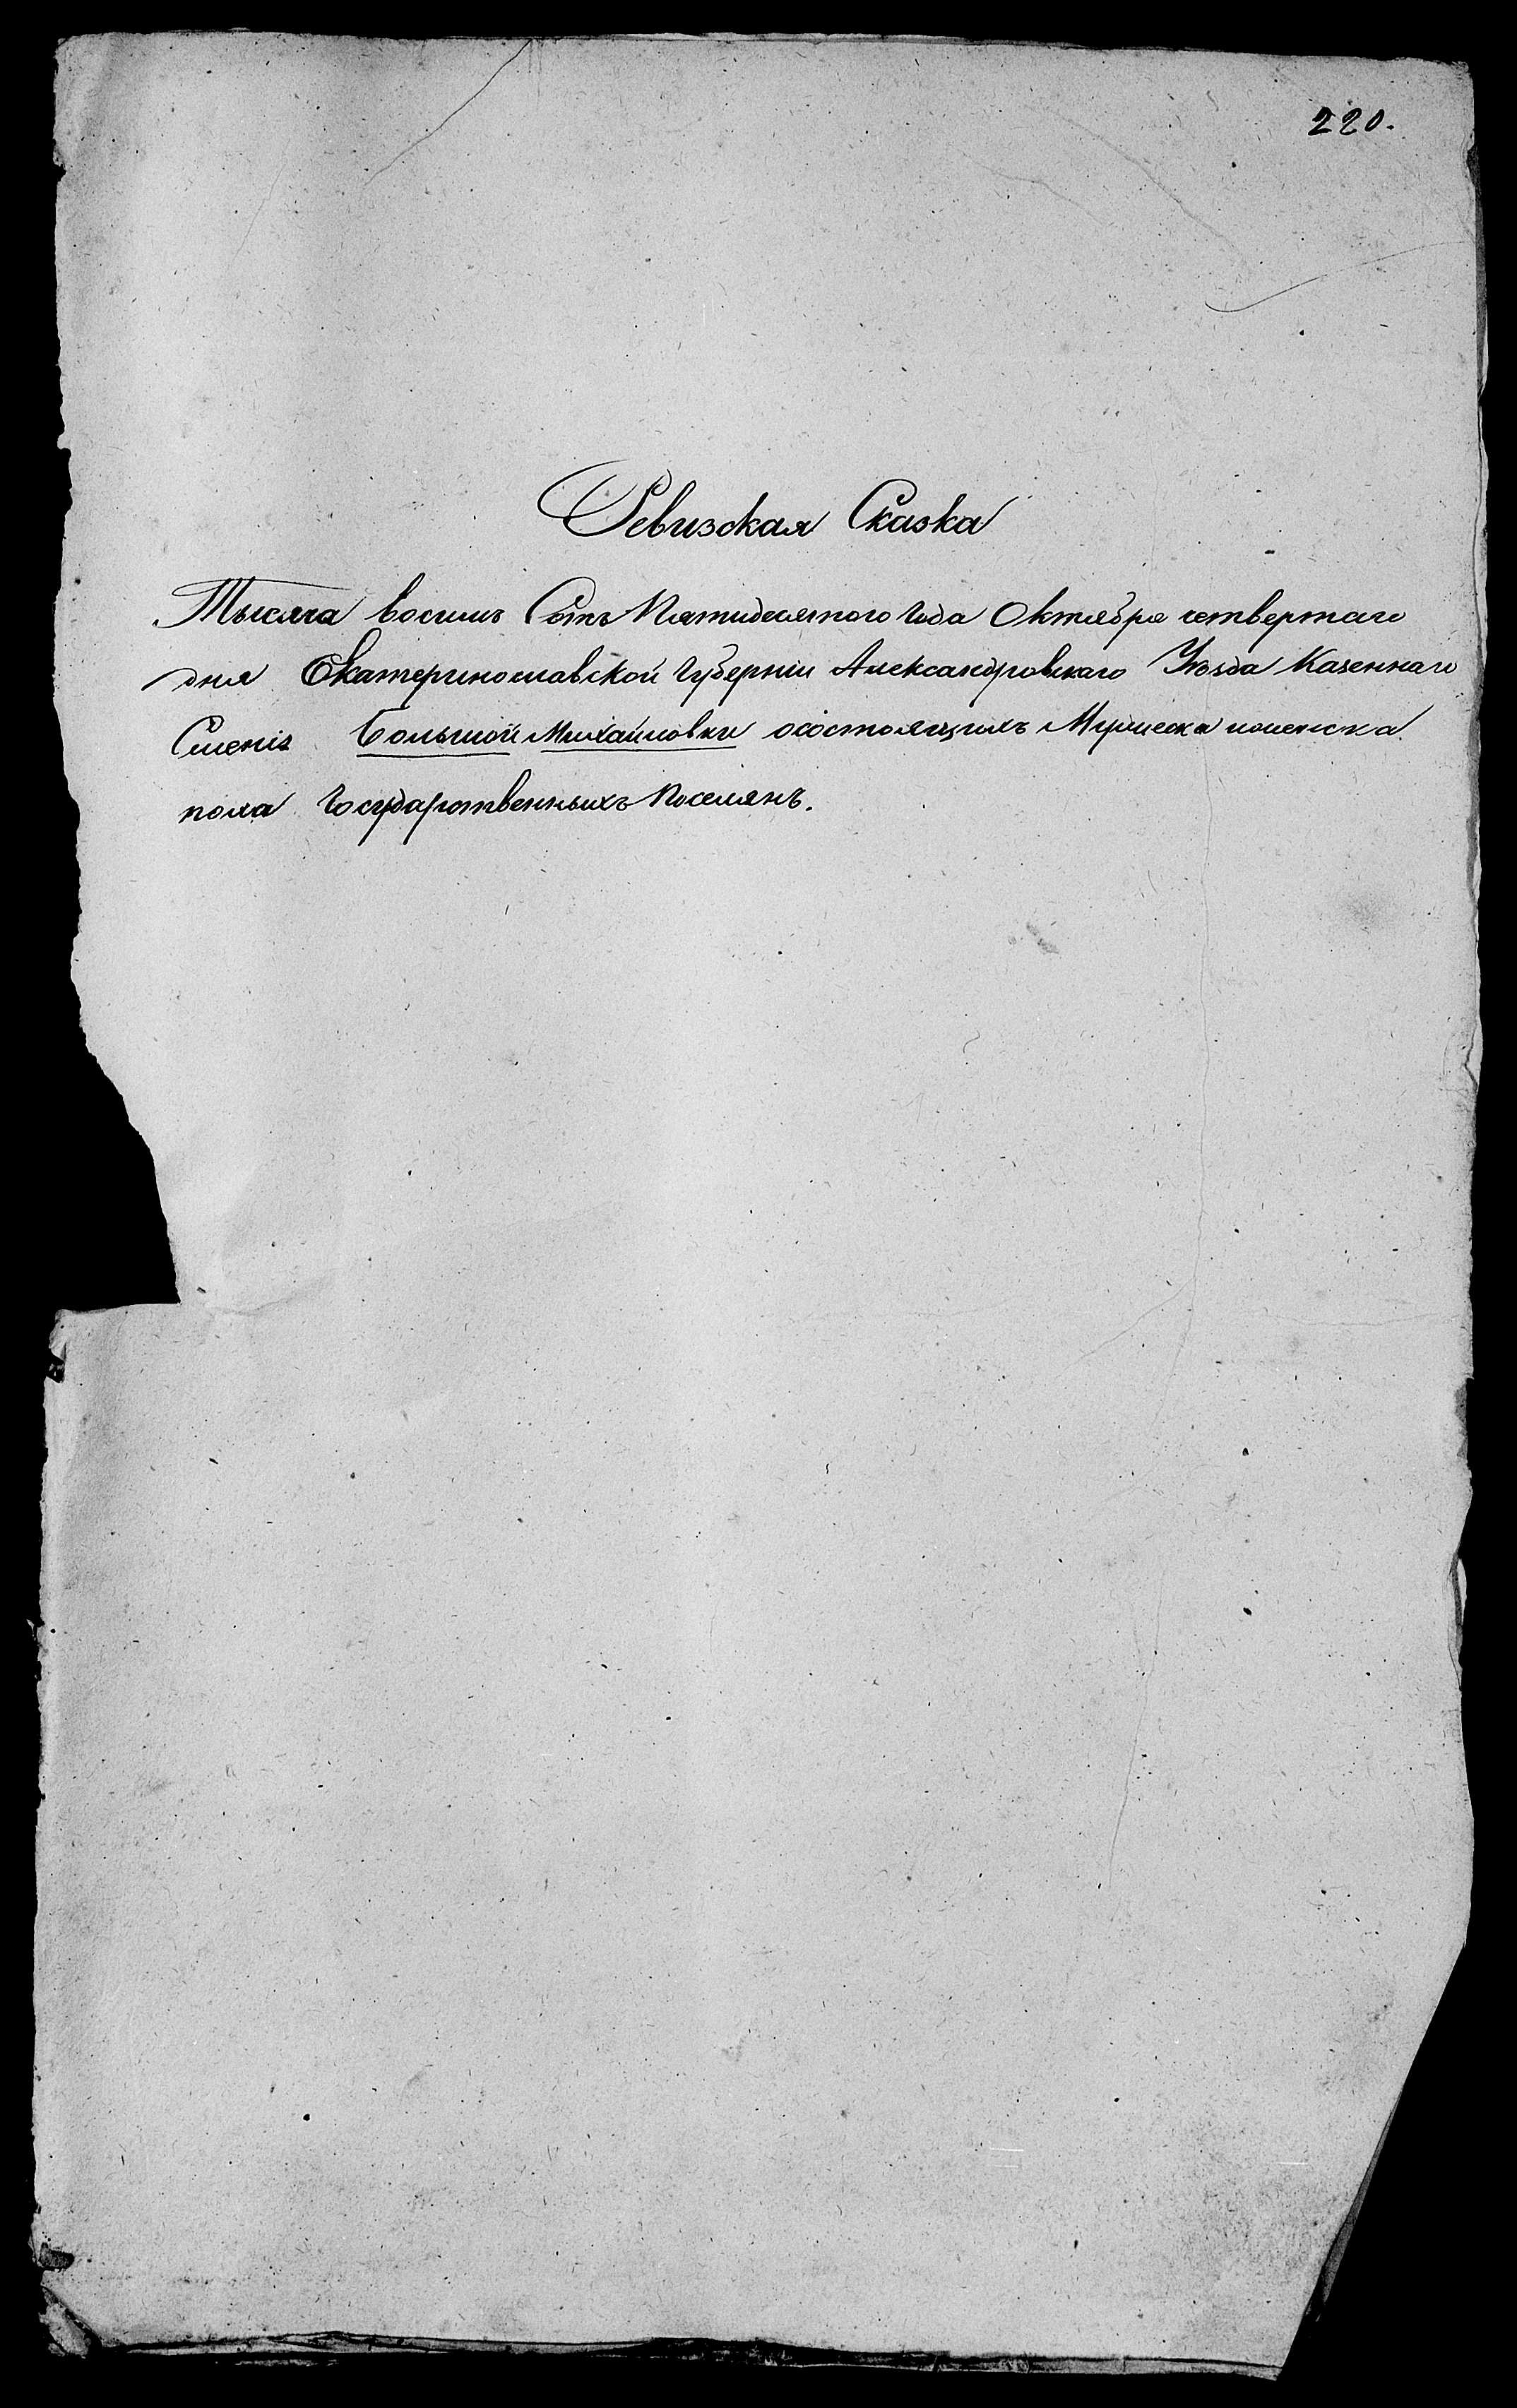 220.
Ревизская Сказка
Тысяча восимъ Сотъ Пятидесятого года Октября четвертаго
дня Екатеринославской губерніи Александровскаго Уѣзда Казеннаго
Силенія Большой Михайловки осостоящихъ Мужиска иженска
пола Государственныхъ Поселянъ.